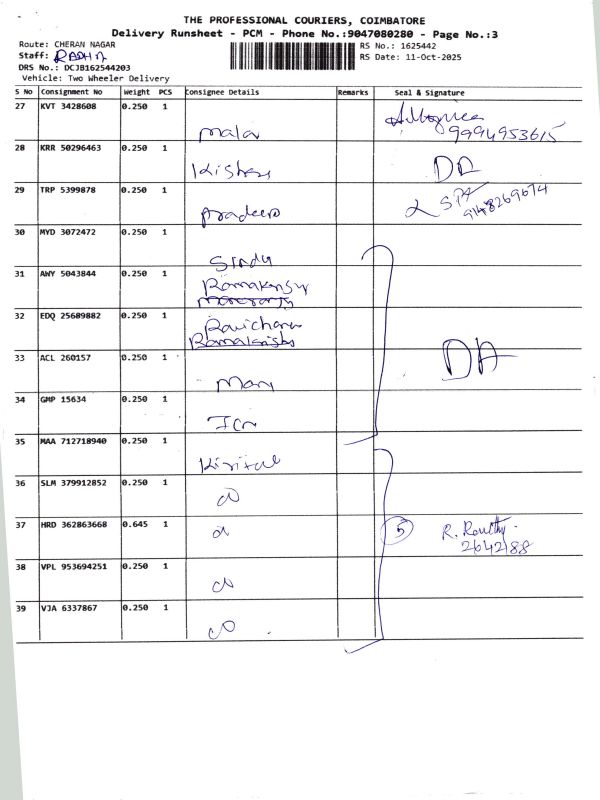 THE PROFESSIONAL COURIERS, COIMBATORE
Delivery Runsheet - PCM - Phone No.:9047080280 - Page No.:3
Route: CHERAN NAGAR
RS No.: 1625442
Staff: RADHA
RS Date: 11-Oct-2025
DRS No.: DCJB162544203
Vehicle: Two Wheeler Delivery
S No Consignment No Weight PCS Consignee Details Remarks Seal & Signature
27 KVT 3428608 0.250 1 Mala 9994953615
28 KRR 50296463 0.250 1 Kishore
29 TRP 5399878 0.250 1 Pradeep 9148269674
30 MYD 3072472 0.250 1 Sindu
31 AWY 5043844 0.250 1
32 EDQ 25689882 0.250 1
33 ACL 260157 0.250 1 Mani DA
34 GMP 15634 0.250 1
35 MAA 712718940 0.250 1
36 SLM 379912852 0.250 1
37 HRD 362863668 0.645 1 5 R.
2642188
38 VPL 953694251 0.250 1
39 VJA 6337867 0.250 1